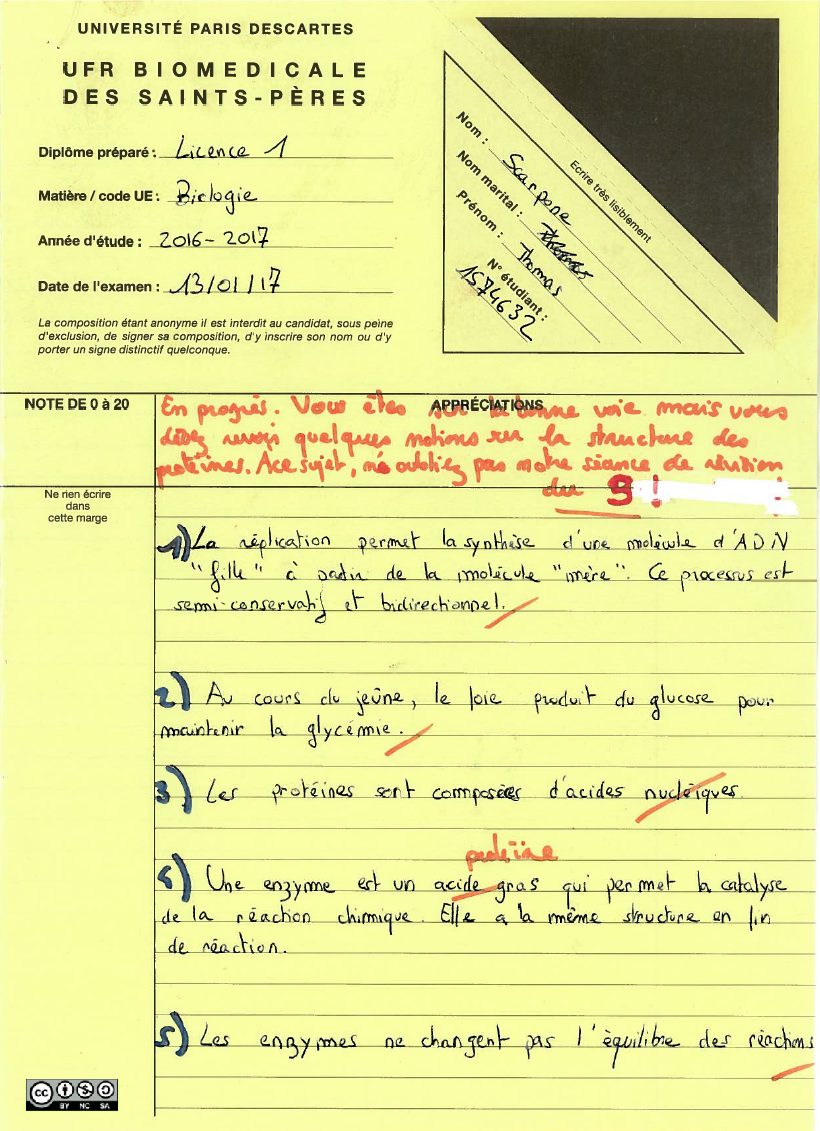 UNIVERSITÉ PARIS DESCARTES
UFR BIOMEDICALE
DES SAINTS-PÈRES
Diplôme préparé : Licence 1
Matière / code UE : Biologie
Année d'étude : 2016-2017
Date de l'examen : 13/01/17
La composition étant anonyme il est interdit au candidat, sous peine
d'exclusion, de signer sa composition, d'y inscrire son nom ou d'y
porter un signe distinctif quelconque.
Nom : Scarpone
Nom marital : Thomas
Prénom : Thomas
N° étudiant :
1574632
Ecrire très lisiblement
NOTE DE 0 à 20
APPRÉCIATIONS
En progrès. Vous êtes sur la bonne voie mais vous
devez revoir quelques notions sur la structure des
protéines. A ce sujet, n'oubliez pas notre séance de révision
du 9 !
Ne rien écrire
dans
cette marge
1) La réplication permet la synthèse d'une molécule d'ADN
"fille" à partir de la molécule "mère". Ce processus est
semi-conservatif et bidirectionnel.
2) Au cours du jeûne, le foie produit du glucose pour
maintenir la glycémie.
3) Les protéines sont composées d'acides nucléiques.
protéine
4) Une enzyme est un acide gras qui permet la catalyse
de la réaction chimique. Elle a la même structure en fin
de réaction.
5) Les enzymes ne changent pas l'équilibre des réactions
cc BY NC SA